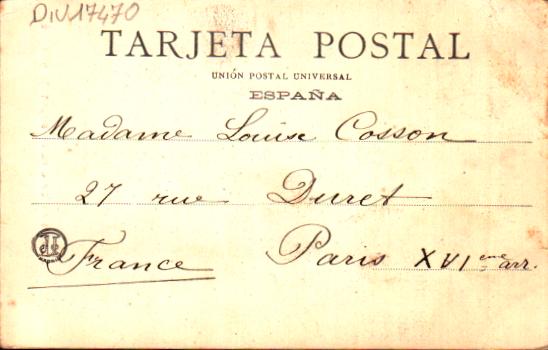 DIV17470
TARJETA POSTAL
UNIÓN POSTAL UNIVERSAL
ESPAÑA
Madame Louise Cosson
27 rue Duret
France Paris XVI eme arr.